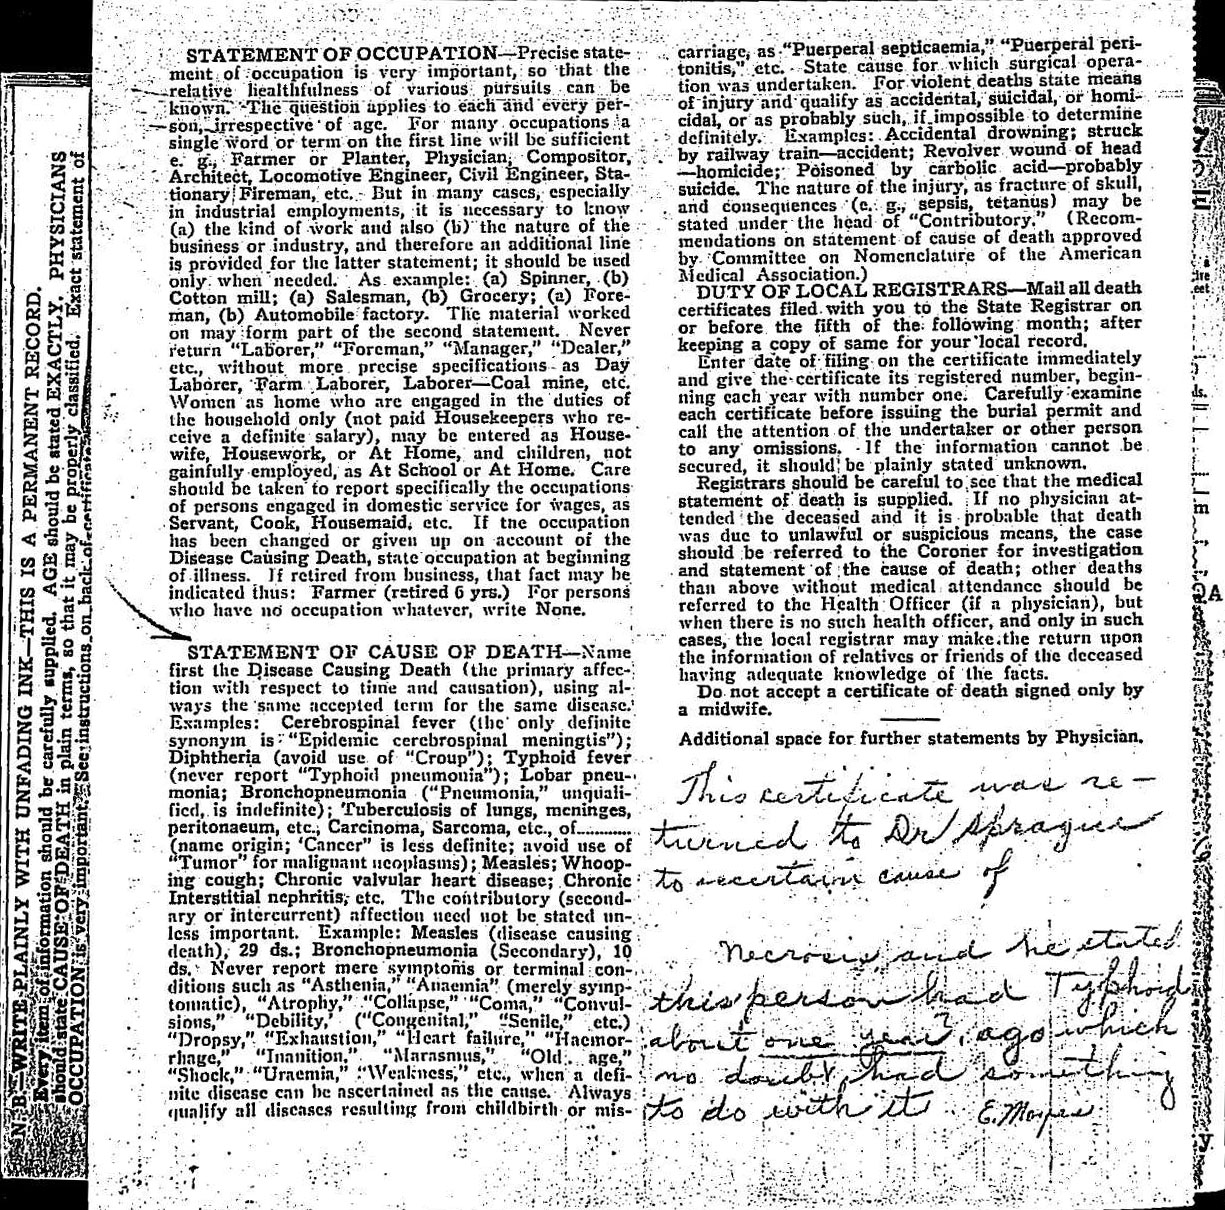 STATEMENT OF OCCUPATION—Precise state-
ment of occupation is very important, so that the
relative healthfulness of various pursuits can be
known. The question applies to each and every per-
son, irrespective of age. For many occupations a
single word or term on the first line will be sufficient
e. g., Farmer or Planter, Physician, Compositor,
Architect, Locomotive Engineer, Civil Engineer, Sta-
tionary Fireman, etc. But in many cases, especially
in industrial employments, it is necessary to know
(a) the kind of work and also (b) the nature of the
business or industry, and therefore an additional line
is provided for the latter statement; it should be used
only when needed. As example: (a) Spinner, (b)
Cotton mill; (a) Salesman, (b) Grocery; (a) Fore-
man, (b) Automobile factory. The material worked
on may form part of the second statement. Never
return "Laborer," "Foreman," "Manager," "Dealer,"
etc., without more precise specifications as Day
Laborer, Farm Laborer, Laborer—Coal mine, etc.
Women as home who are engaged in the duties of
the household only (not paid Housekeepers who re-
ceive a definite salary), may be entered as House-
wife, Housework, or At Home, and children, not
gainfully employed, as At School or At Home. Care
should be taken to report specifically the occupations
of persons engaged in domestic service for wages, as
Servant, Cook, Housemaid, etc. If tne occupation
has been changed or given up on account of the
Disease Causing Death, state occupation at beginning
of illness. If retired from business, that fact may be
indicated thus: Farmer (retired 6 yrs.) For persons
who have no occupation whatever, write None.
STATEMENT OF CAUSE OF DEATH—Name
first the Disease Causing Death (the primary affec-
tion with respect to time and causation), using al-
ways the same accepted term for the same disease.
Examples: Cerebrospinal fever (the only definite
synonym is "Epidemic cerebrospinal meningtis");
Diphtheria (avoid use of "Croup"); Typhoid fever
(never report "Typhoid pneumonia"); Lobar pneu-
monia; Bronchopneumonia ("Pneumonia," unquali-
fied, is indefinite); Tuberculosis of lungs, meninges,
peritonaeum, etc., Carcinoma, Sarcoma, etc., of............
(name origin; 'Cancer" is less definite; avoid use of
"Tumor" for malignant neoplasms); Measles; Whoop-
ing cough; Chronic valvular heart disease; Chronic
Interstitial nephritis, etc. The contributory (second-
ary or intercurrent) affection need not be stated un-
less important. Example: Measles (disease causing
death), 29 ds.; Bronchopneumonia (Secondary), 10
ds. Never report mere symptoms or terminal con-
ditions such as "Asthenia," "Anaemia" (merely symp-
tomatic), "Atrophy," "Collapse," "Coma," "Convul-
sions," "Debility,' ("Congenital," "Senile," etc.)
"Dropsy," "Exhaustion," "Heart failure," "Haemor-
rhage," "Inanition," "Marasmus," "Old age,"
"Shock," "Uraemia," "Weakness," etc., when a defi-
nite disease can be ascertained as the cause. Always
qualify all diseases resulting from childbirth or mis-
carriage, as "Puerperal septicaemia," "Puerperal peri-
tonitis," etc. State cause for which surgical opera-
tion was undertaken. For violent deaths state means
of injury and qualify as accidental, suicidal, or homi-
cidal, or as probably such, if impossible to determine
definitely. Examples: Accidental drowning; struck
by railway train—accident; Revolver wound of head
—homicide; Poisoned by carbolic acid—probably
suicide. The nature of the injury, as fracture of skull,
and consequences (e. g., sepsis, tetanus) may be
stated under the head of "Contributory." (Recom-
mendations on statement of cause of death approved
by Committee on Nomenclature of the American
Medical Association.)
DUTY OF LOCAL REGISTRARS—Mail all death
certificates filed with you to the State Registrar on
or before the fifth of the following month; after
keeping a copy of same for your local record.
Enter date of filing on the certificate immediately
and give the certificate its registered number, begin-
ning each year with number one. Carefully examine
each certificate before issuing the burial permit and
call the attention of the undertaker or other person
to any omissions. If the information cannot be
secured, it should be plainly stated unknown.
Registrars should be careful to see that the medical
statement of death is supplied. If no physician at-
tended the deceased and it is probable that death
was due to unlawful or suspicious means, the case
should be referred to the Coroner for investigation
and statement of the cause of death; other deaths
than above without medical attendance should be
referred to the Health Officer (if a physician), but
when there is no such health officer, and only in such
cases, the local registrar may make the return upon
the information of relatives or friends of the deceased
having adequate knowledge of the facts.
Do not accept a certificate of death signed only by
a midwife.
Additional space for further statements by Physician.
This certificate was re-
turned to Dr Sprague
to ascertain cause of
Necrosis and he stated
this person had Typhoid
about one year ago which
no doubt had something
to do with it E.
N. B.—WRITE PLAINLY WITH UNFADING INK—THIS IS A PERMANENT RECORD.
Every item of information should be carefully supplied. AGE should be stated EXACTLY. PHYSICIANS
should state CAUSE OF DEATH in plain terms, so that it may be properly classified. Exact statement of
OCCUPATION is very important. See instructions on back of certificate.